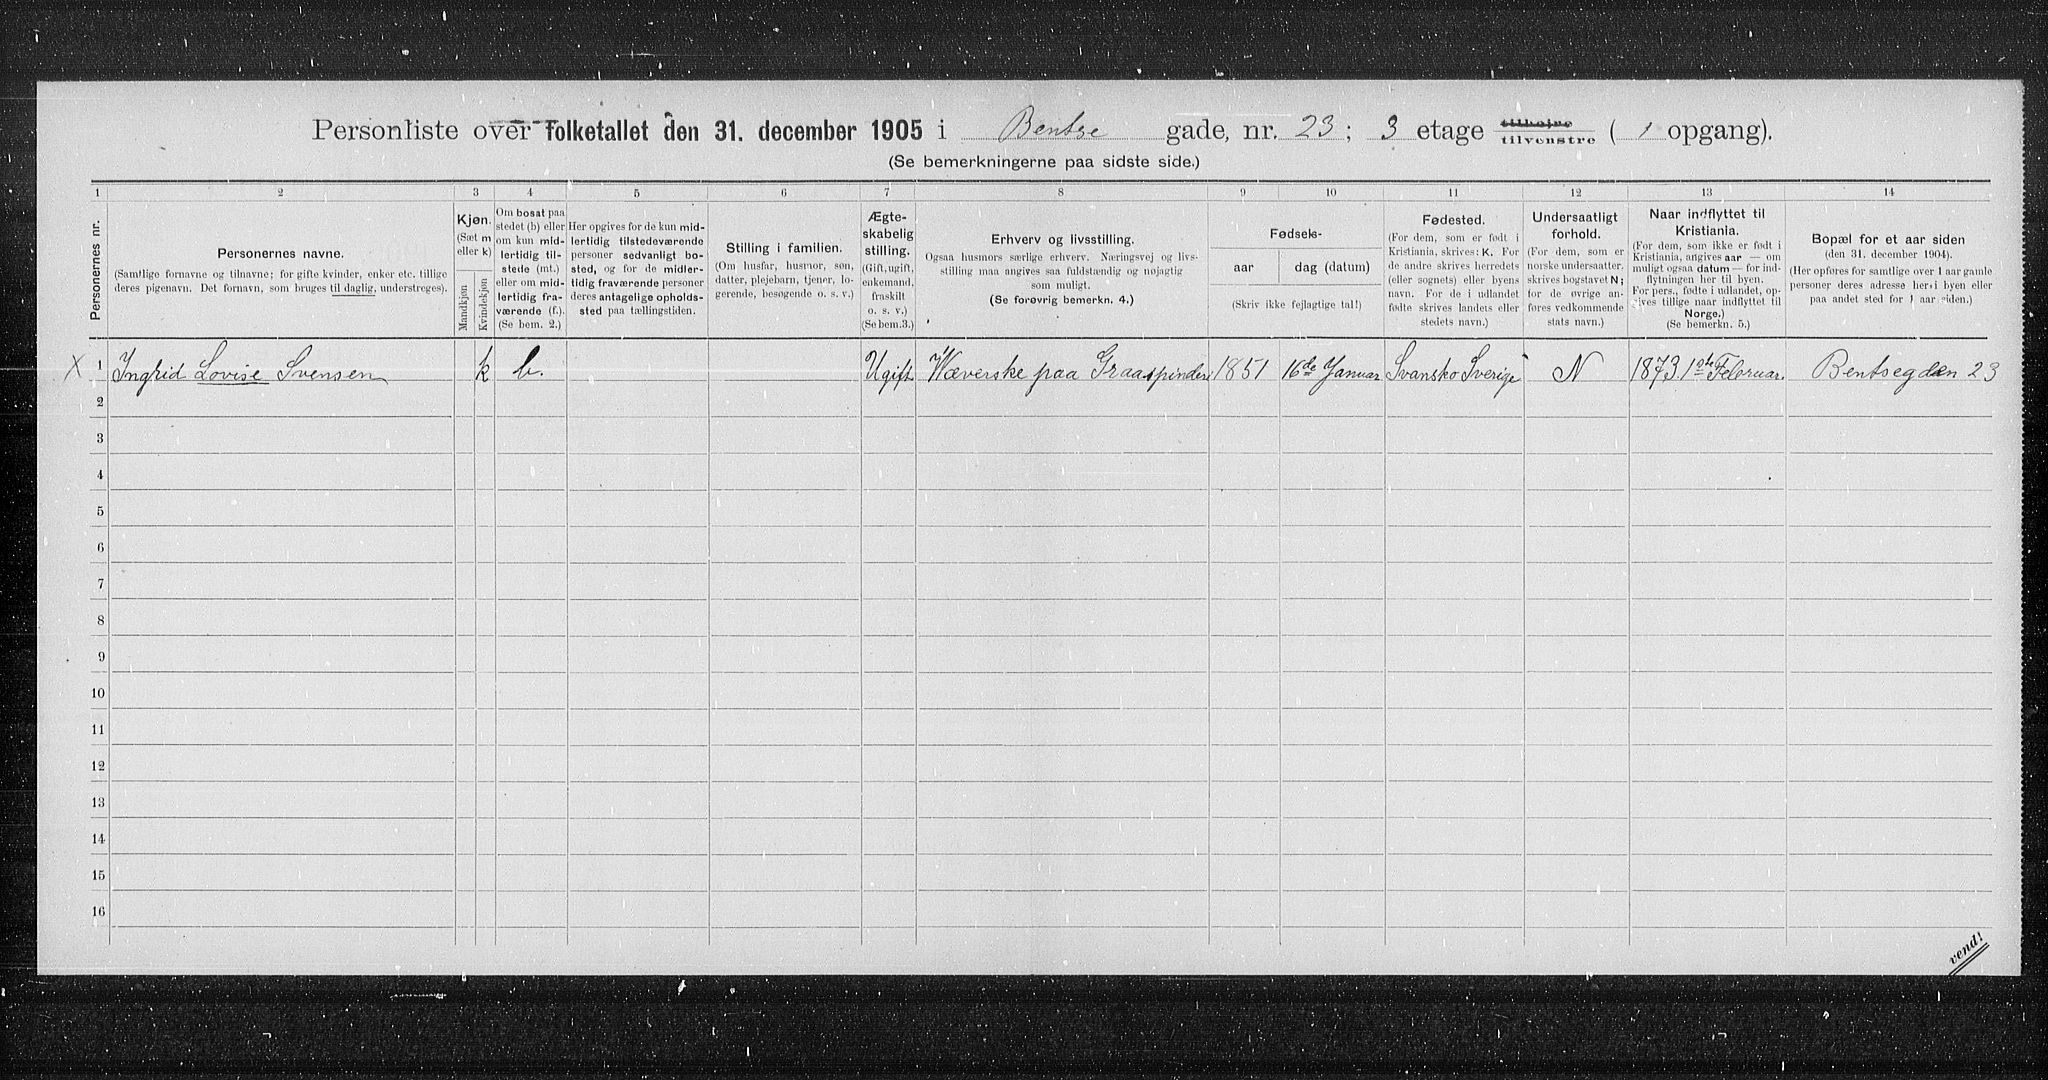 Personliste over folketallet den 31. december 1905 i Bentse gade, nr. 23; 3 etage tilhøire tilvenstre ( 1 opgang).
(Se bemerkningerne paa sidste side.)
1 2 3 4 5 6 7 8 9 10 11 12 13 14
Personernes nr.
Personernes navne.
(Samtlige fornavne og tilnavne; for gifte kvinder, enker etc. tillige
deres pigenavn. Det fornavn, som bruges til daglig, understreges).
Kjøn.
(Sæt m
eller k)
Mandkjøn
Kvindekjøn
Om bosat paa
stedet (b) eller
om kun mid-
lertidig til-
stede (mt.)
eller om mid-
lertidig fra-
værende (f.).
(Se bem. 2.)
Her opgives for de kun mid-
lertidig tilstedeværende
personer sedvanlig bo-
sted, og for de midler-
tidig fraværende personer
deres antagelige opholds-
sted paa tællingstiden.
Stilling i familien.
(Om husfar, husmor, søn,
datter, plejebarn, tjener, lo-
gerende, besøgende o. s. v.)
Ægte-
skabelig
stilling.
(Gift, ugift,
enkemand,
fraskilt
o. s. v.)
(Se bem.3.)
Erhverv og livsstilling.
Ogsaa husmors særlige erhverv. Næringsvej og livs-
stilling maa angives saa fuldstændig og nøjagtig
som muligt.
(Se forøvrig bemerkn. 4.)
Fødsels-
aar dag (datum)
(Skriv ikke fejlagtige tal!)
Fødested.
(For dem, som er født i
Kristiania, skrives: K. For
de andre skrives herredets
(eller sognets) eller byens
navn. For de i udlandet
fødte skrives landets eller
stedets navn.)
Undersaatligt
forhold.
(For dem, som er
norske undersaatter,
skrives bogstavet N;
for de øvrige an-
føres vedkommende
stats navn.)
Naar indflyttet til
Kristiania.
(For dem, som ikke er født i
Kristiania, angives aar — om
muligt ogsaa datum — for ind-
flytningen her til byen.
For pers., fødte i udlandet, op-
gives tillige naar indflyttet til
Norge.)
(Se bemerkn. 5.)
Bopæl for et aar siden
(den 31. december 1904).
(Her opføres for samtlige over 1 aar gamle
personer deres adresse her i byen eller
paa andet sted for 1 aar siden.)
X 1 Ingrid Lovise Svensen k b. Ugift Wæverske paa Graaspinderi 1851 16de Januar Svansko Sverige N 1873. 1ste Februar. Bentsegden 23
2
3
4
5
6
7
8
9
10
11
12
13
14
15
16
vend!